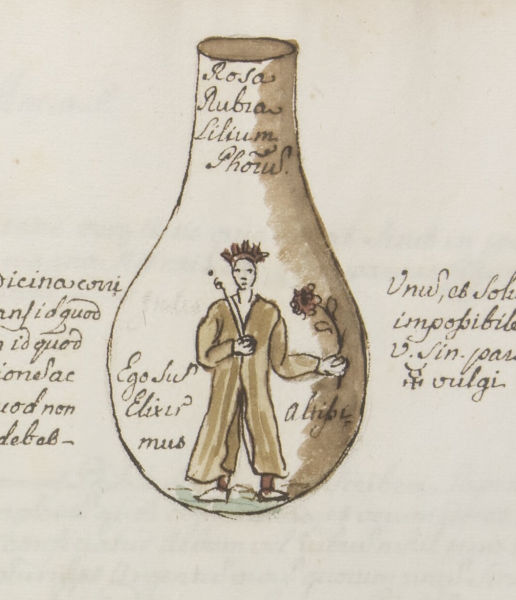 Rosa
Rubra
Lilium
Phorũ.
dicina corri
ans id quod
n id quod
iones ac
uod non
debeb-
Ego Sus
Elixir
mus
Altissi-
Unus, et Solu
impossibile
V. Sin. par
vulgi